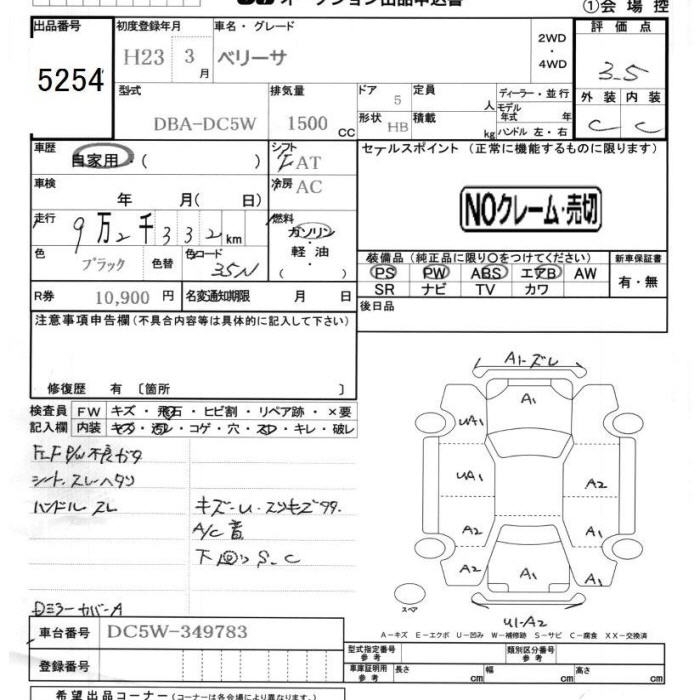 オークション出品申込書 ①会場控
出品番号 初度登録年月 車名・グレード 2WD・4WD 評価点
5254 H23 3月 ベリーサ 3.5
型式 DBA-DC5W 排気量 1500 CC ドア 5 定員 人 ディーラー・並行 外装 内装
形状 HB 積載 kg モデル年式 年 ハンドル 左・右 C C
車歴 自家用・( ) シフト FAT セールスポイント (正常に機能するものに限ります)
車検 年 月( 日) 冷房 AC
NOクレーム・売切
走行 9万2千332km 燃料 ガソリン・軽油・( )
色 ブラック 色替 色コード 35N
装備品 (純正品に限り○をつけてください) 新車保証書
PS PW ABS エアB AW 有・無
SR ナビ TV カワ
R券 10,900 円 名変通知期限 月 日 後日品
注意事項申告欄 (不具合内容等は具体的に記入して下さい)
修復歴 有 〔箇所 〕
検査員記入欄 FW キズ・飛石・ヒビ割・リペア跡・×要
内装 キズ・汚レ・コゲ・穴・スレ・キレ・破レ
P/W不良
シート スレ ヘタリ
ハンドル スレ
キズ-U・スリキズ多々
A/C音
下回りS.C
Dミラーカバー-A
A1-ズレ
A1
UA1
UA1 A2
A2 A1
A2 A1 A1
スペア
U1-A2
A-キズ E-エクボ U-凹み W-補修跡 S-サビ C-腐食 XX-交換済
車台番号 DC5W-349783
登録番号
型式指定番号 参考 類別区分番号 参考
車庫証明用 参考 長さ cm 幅 cm 高さ cm
希望出品コーナー (コーナーは各会場により異なります。)